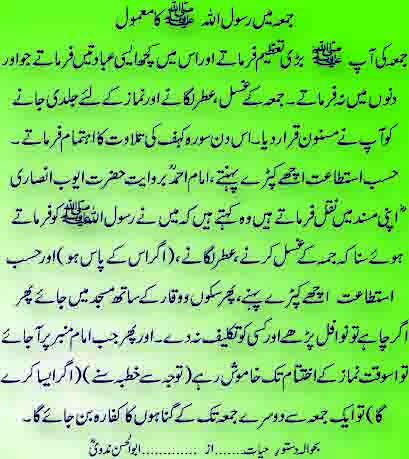 جمعہ میں رسول اللہ ﷺ کا معمول
جمعہ کی آپ ﷺ بڑی تعظیم فرماتے اور اس میں کچھ ایسی عبادتیں فرماتے جو اور
دنوں میں نہ فرماتے۔ جمعہ کے غسل، عطر لگانے اور نماز کے لئے جلدی جانے
کو آپ نے مسنون قرار دیا۔ اس دن سورہ کہف کی تلاوت کا اہتمام فرماتے۔
حسب استطاعت اچھے کپڑے پہنتے، امام احمدؒ بروایت حضرت ایوب انصاری
اپنی مسند میں نقل فرماتے ہیں وہ کہتے ہیں کہ میں نے رسول اللہ ﷺ کو فرماتے
ہوئے سنا کہ جمہ کے غسل کرنے، عطر لگانے، (اگر اس کے پاس ہو) اور حسب
استطاعت اچھے کپڑے پہنے، پھر سکون و وقار کے ساتھ مسجد میں جائے پھر
اگر چاہے تو نوافل پڑھے اور کسی کو تکلیف نہ دے۔ اور پھر جب امام منبر پر آ جائے
تو اسوقت نماز کے اختتام تک خاموش رہے (توجہ سے خطبہ سنے) (اگر ایسا کرے
گا) تو ایک جمعہ سے دوسرے جمعہ تک کے گناہوں کا کفارہ بن جائے گا۔
بحوالہ دستور حیات.......از .............ابوالحسن ندویؒ